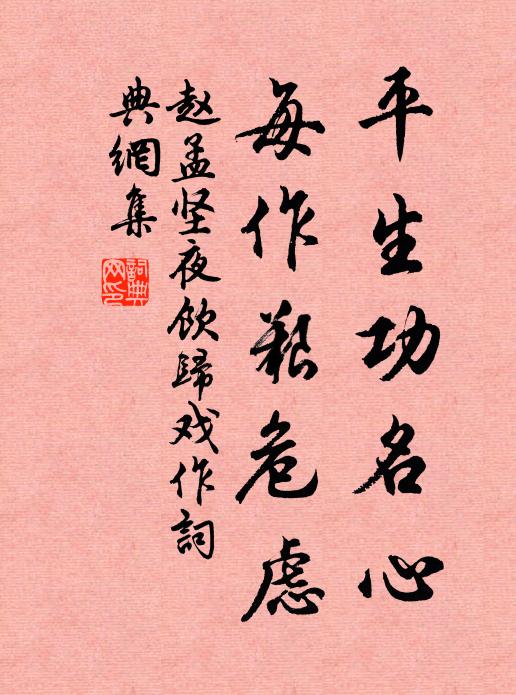 平生功名心
每作艱危慮
赵孟坚夜饮歸戏作詞
典網集
詞典網印